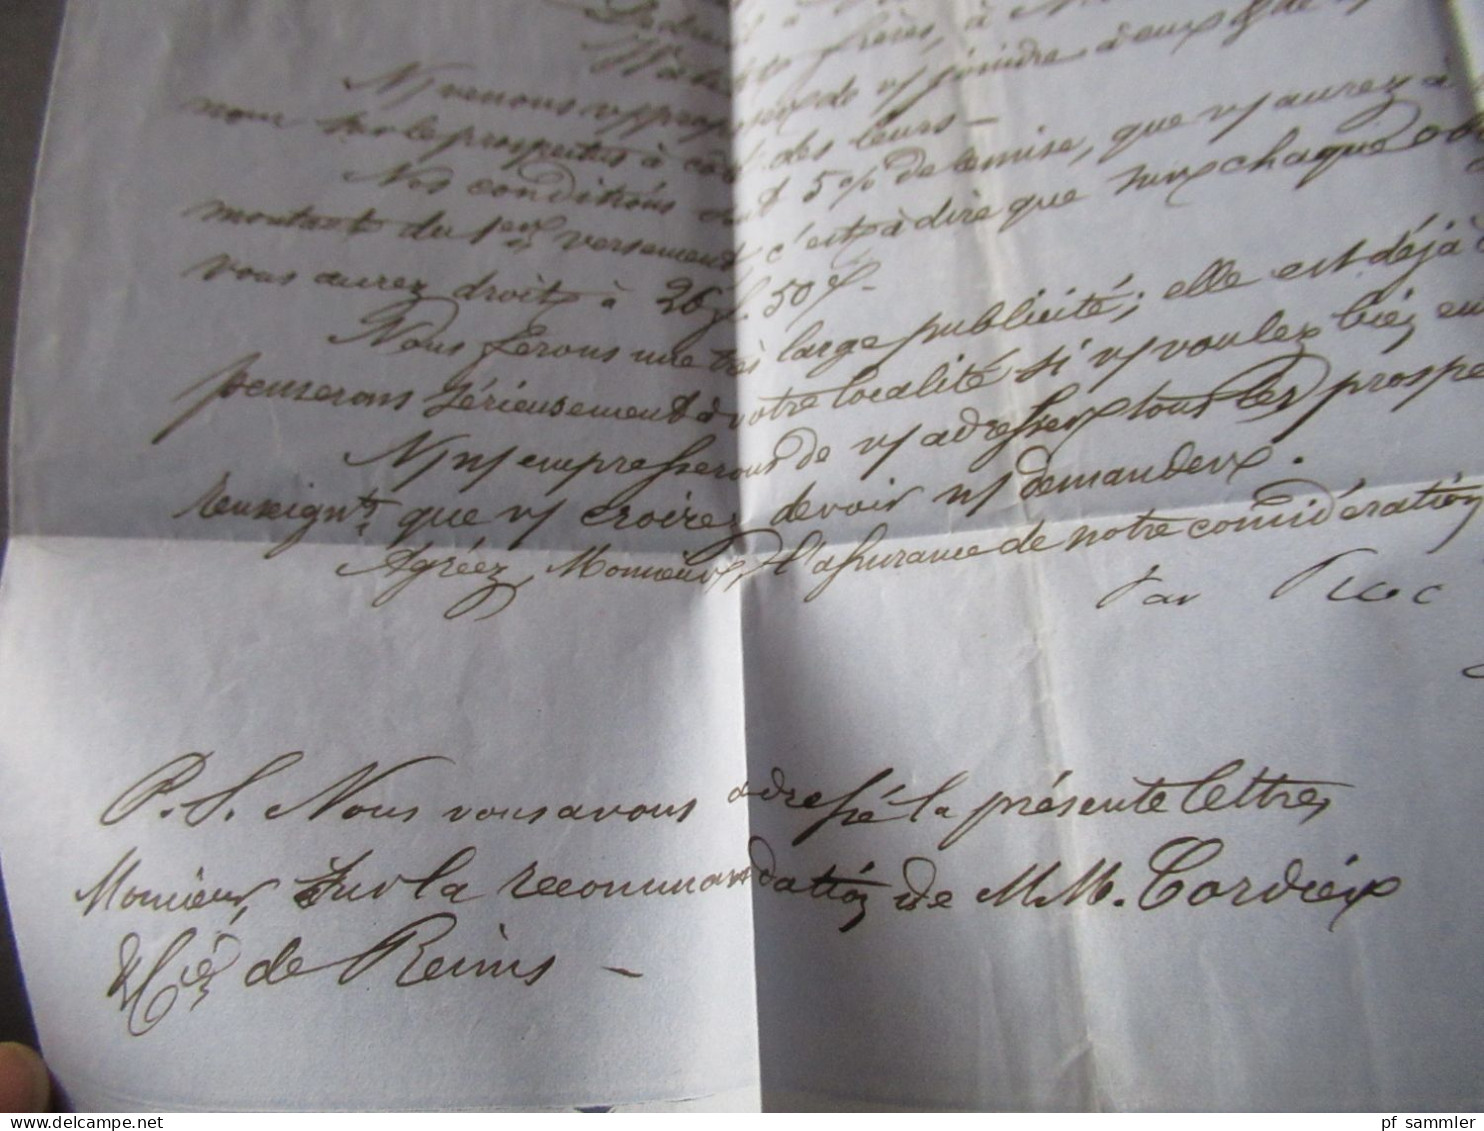 frères, à
Ns venons vs proposer de vs joindre à eux & de
nom sur le prospectus à côté des leurs —
Nos conditions sont 5 % de remise, que vs aurez à
montant du 1er versement c'est à dire que sur chaque
vous aurez droit à 26 f 50 c. —
Nous ferons une très large publicité; elle est déjà
penserons sérieusement à votre localité si vs voulez bien
Ns ns empresserons de vs adresser tous les
renseignts. que vs croirez devoir ns demander.
Agréez, Monsieur, l'assurance de notre considération
Par Proc
P.S. Nous vous avons adressé la présente lettre,
Monsieur, sur la recommandation de MM. Cordier
& Cie de Reims —
pf sammler